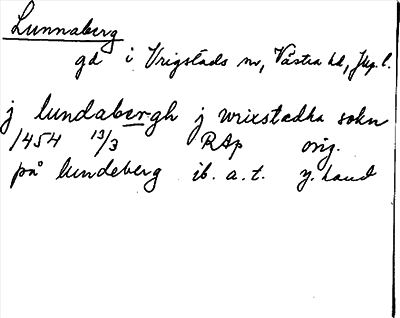 Lunnaberg
gd i Vrigstads sn, Västra hd, Jkp. l.
j lundabergh j wrixstædha sokn
1454 13/3 RAp orig.
på lundeberg ib. a. t. y. hand